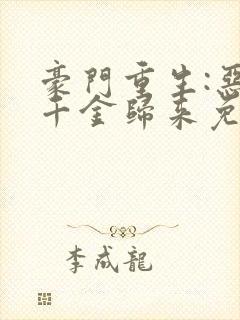 豪門重生:惡
千金歸來免
李成龍